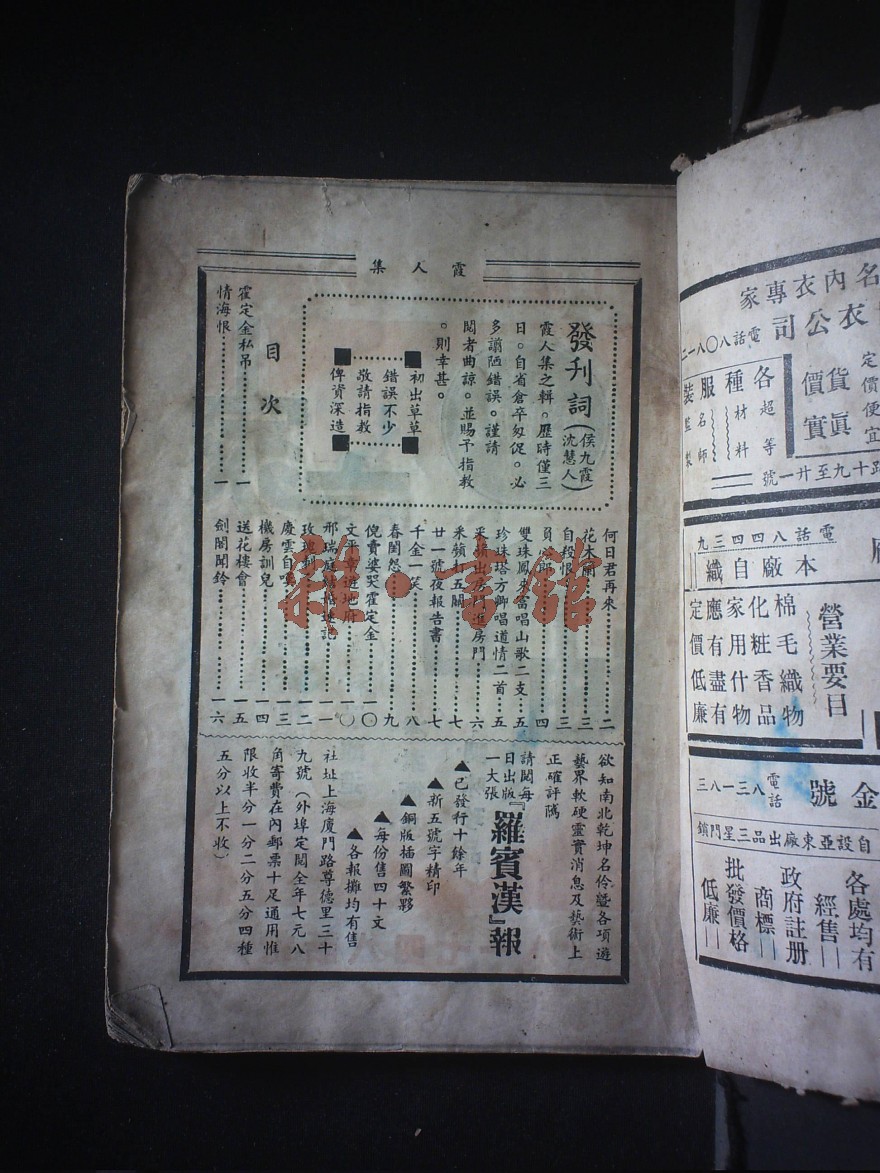 霞人集
發刊詞
(侯九霞
沈慧人)
霞人集之輯。歷時僅三
日。自省倉卒匆促。必
多謭陋錯誤。謹請
閱者曲諒。並賜予指教
。則幸甚。
■初出草草■
錯誤不少
敬請指教
■俾資深造■
目次
霍定金私吊一
情海恨一
何日君再來二
花木蘭三
自殺恨三
負心郎四
雙珠鳳來富唱山歌二支五
珍珠塔方卿唱道情二首五
采蘋出房門進房門六
采蘋打五關七
廿一號夜報告書七
千金一笑八
春閨怨九
倪賣婆哭霍定金一〇
文平章遊地府一〇
邢瑞庭一一
玫瑰一二
慶雲自嘆一三
機房訓兒一四
送花樓會一五
劍閣聞鈴一六
欲知南北乾坤名伶暨各項遊
藝界軟硬靈實消息及藝術上
正確評隲
請閱每
日出版
一大張
『羅賓漢』報
▲已發行十餘年
▲新五號字精印
▲銅版插圖繁夥
▲每份售四十文
▲各報攤均有售
社址上海廈門路尊德里三十
九號(外埠定閱全年七元八
角寄費在內郵票十足通用惟
限收半分一分二分五分四種
五分以上不收)
雜·書館
名內衣專家
衣公司
電話八〇八一二
定價便宜
貨真
價實
各種服裝
超等材料
名師監製
路十九至廿一號
電話八四四三九
本廠自織
營業要目
棉毛織物
化粧香品
家用什物
應有盡有
定價低廉
金號
電話八三一八三
自設亞東廠出品三星門鎖
各處均有
經售
政府註册
商標
批發價格
低廉